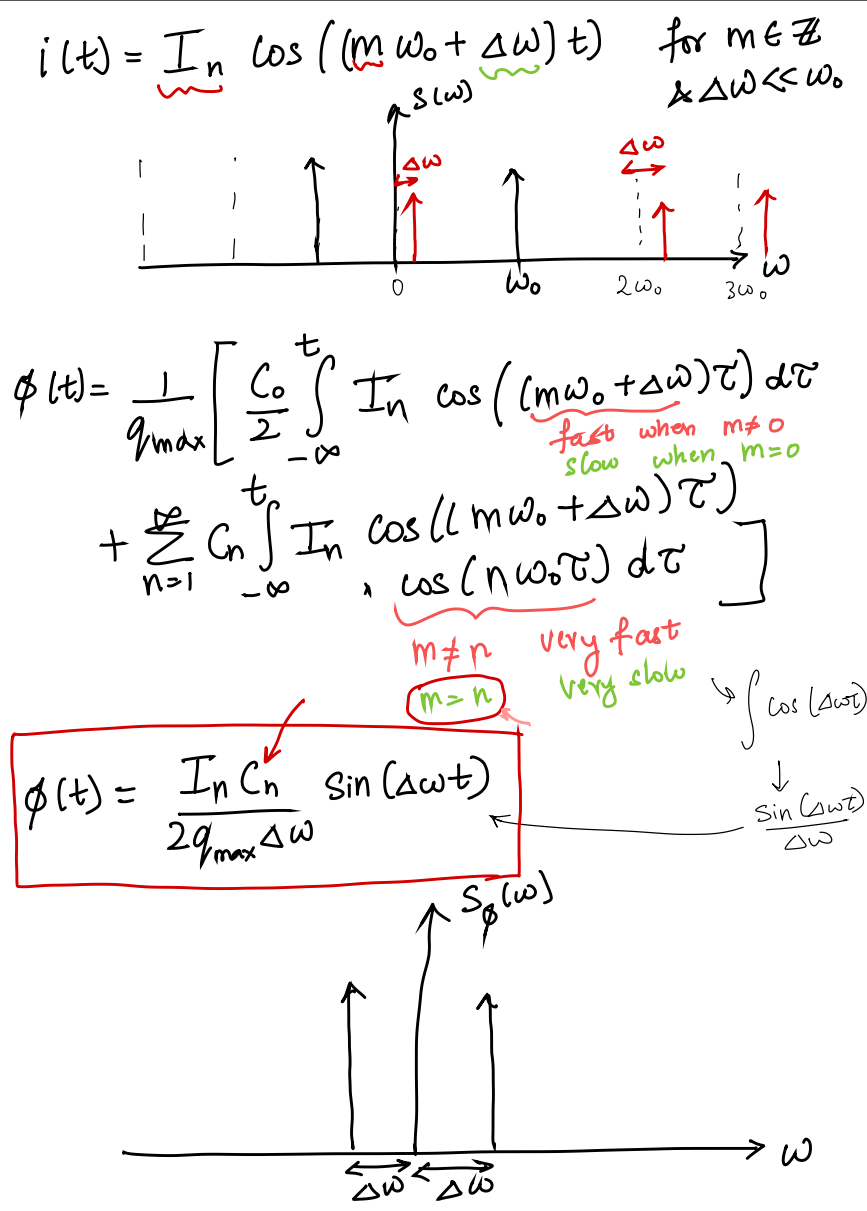 i(t) = Iₙ cos((mω₀ + Δω)t) for m ∈ ℤ
& Δω << ω₀
S(ω)
Δω Δω
0 ω₀ 2ω₀ 3ω₀ ω
ϕ(t) = 1/q_max [ C₀/2 ∫_{-∞}^{t} Iₙ cos((mω₀ + Δω)τ) dτ
fast when m≠0
slow when m=0
+ Σ_{n=1}^{∞} Cₙ ∫_{-∞}^{t} Iₙ cos((mω₀ + Δω)τ)
. cos(nω₀τ) dτ ]
m ≠ n very fast
m = n very slow
∫ cos(Δωt)
↓
sin(Δωt)/Δω
ϕ(t) = IₙCₙ/(2q_max Δω) sin(Δωt)
S_ϕ(ω)
ω
Δω Δω